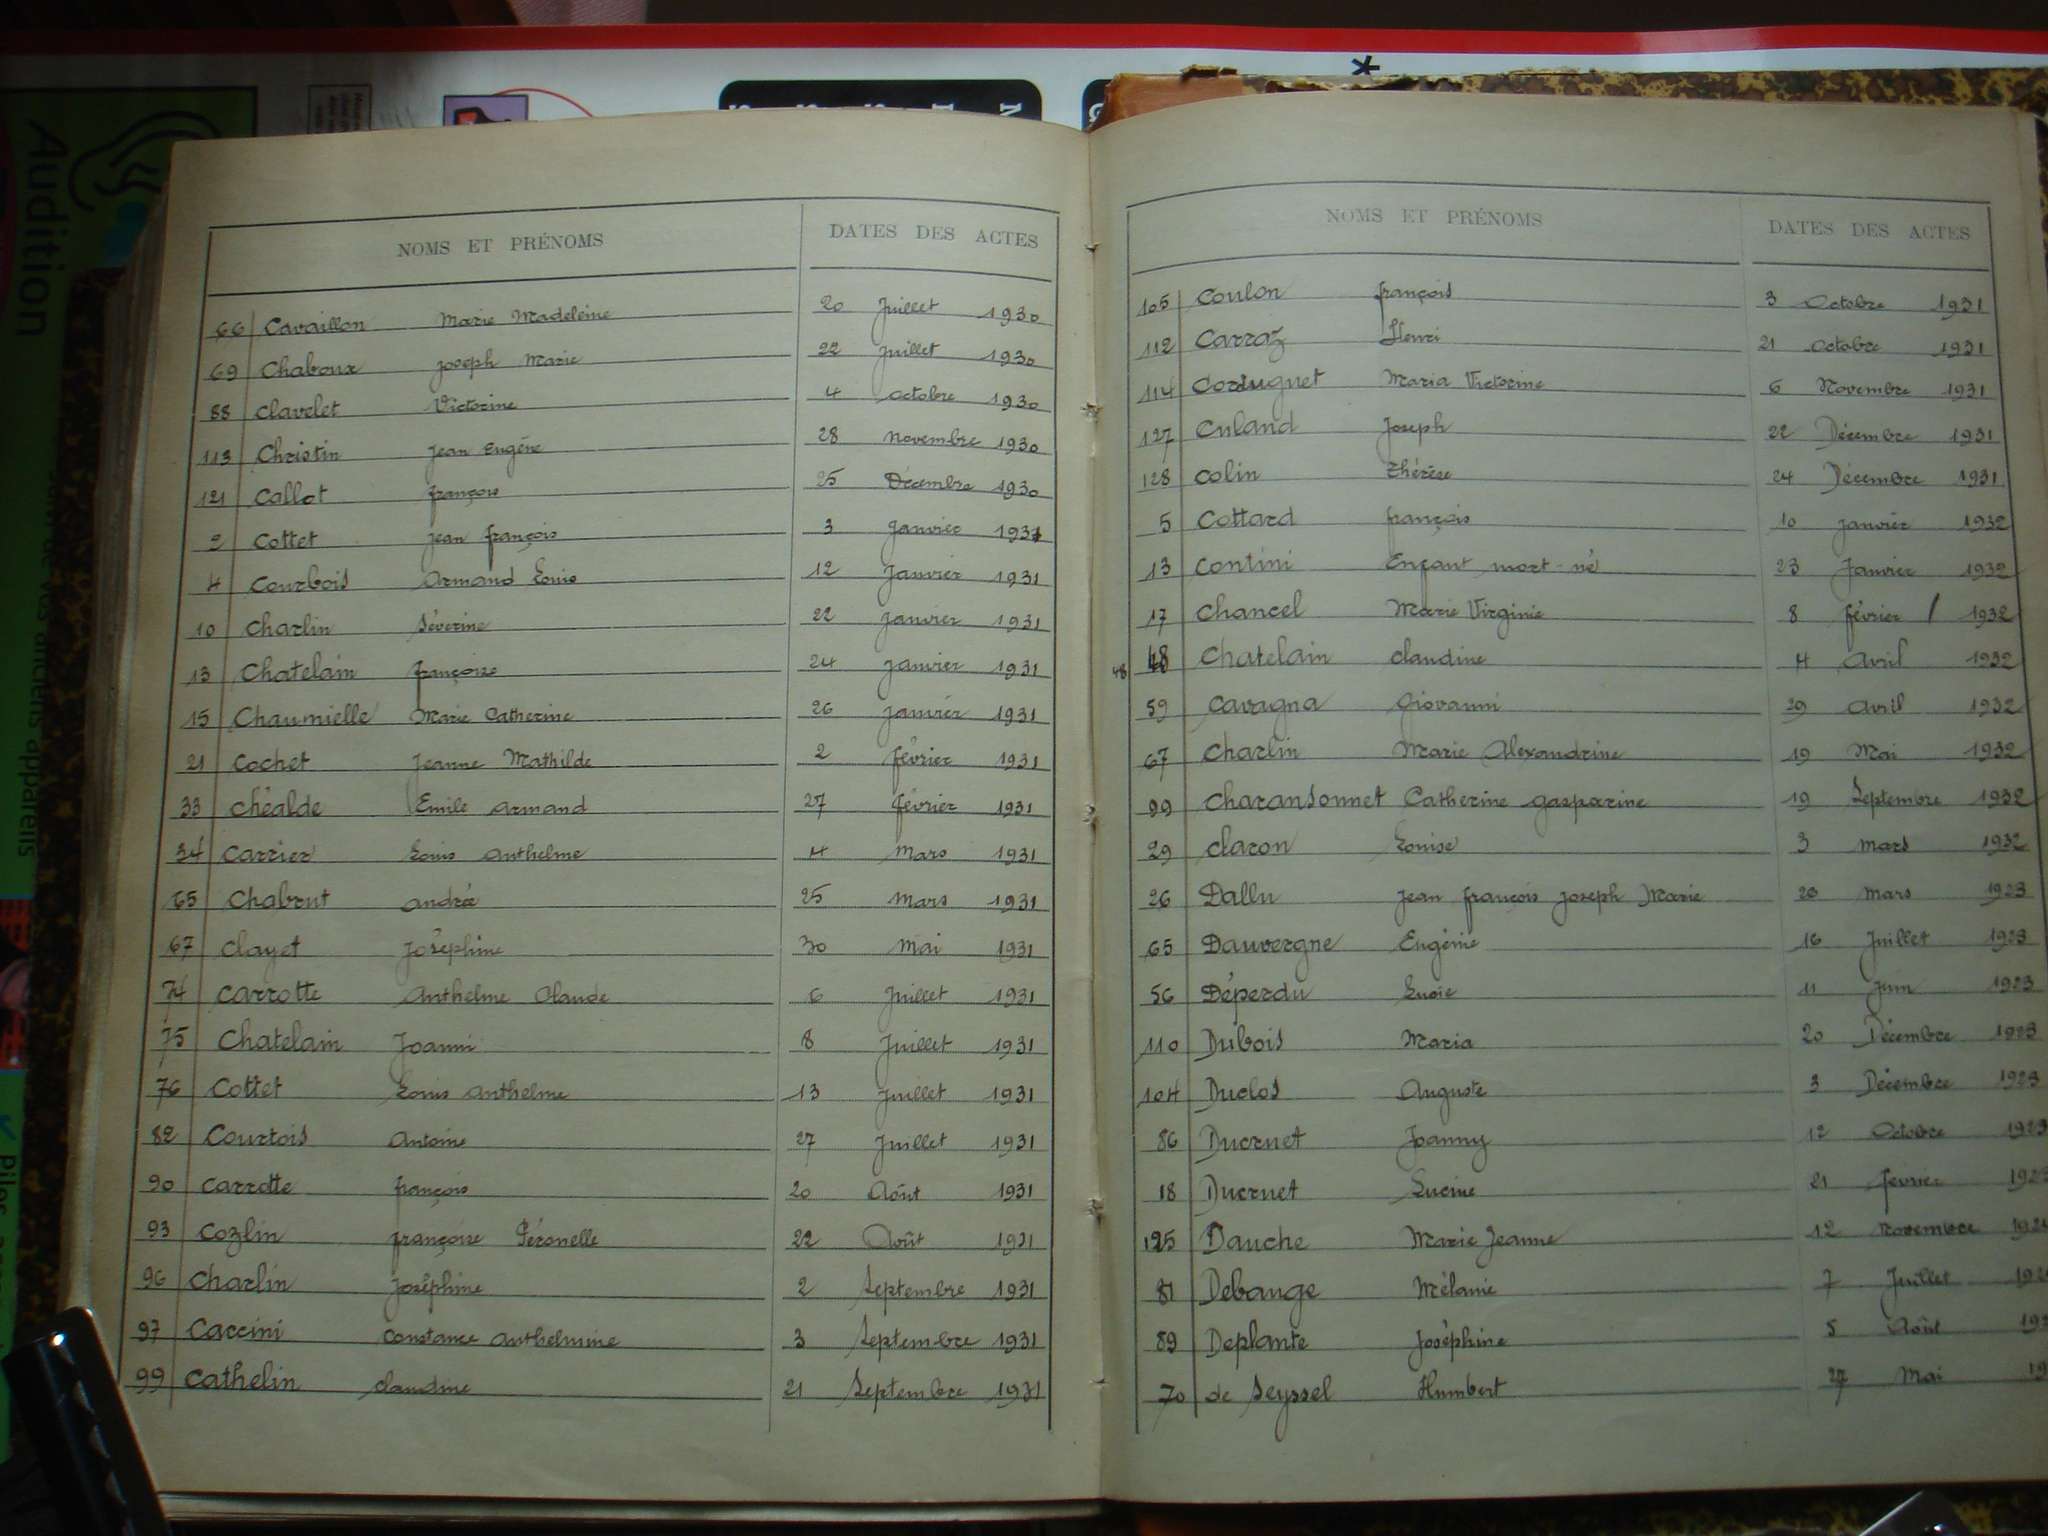 Audition
NOMS ET PRÉNOMS DATES DES ACTES
66 Cavaillon Marie Madeleine 20 Juillet 1930
69 Chaboux Joseph Marie 22 Juillet 1930
88 Clavelet Victorine 4 Octobre 1930
113 Christin Jean Eugène 28 Novembre 1930
121 Callot François 25 Décembre 1930
2 Cottet Jean François 3 Janvier 1931
4 Courbois Armand Louis 12 Janvier 1931
10 Charlin Séverine 22 Janvier 1931
13 Chatelain Françoise 24 Janvier 1931
15 Chaumielle Marie Catherine 26 Janvier 1931
21 Cochet Jeanne Mathilde 2 Février 1931
33 Chéalde Emile Armand 27 Février 1931
34 Carrier Louis Anthelme 4 Mars 1931
65 Chabrut Andrée 25 Mars 1931
67 Clayet Joséphine 30 Mai 1931
74 Carrotte Anthelme Claude 6 Juillet 1931
75 Chatelain Joanni 8 Juillet 1931
76 Cottet Louis Anthelme 13 Juillet 1931
82 Courtois Antoine 27 Juillet 1931
90 Carrotte François 20 Août 1931
93 Cozlin Françoise Péronelle 22 Août 1931
96 Charlin Joséphine 2 Septembre 1931
97 Caccini Constance Anthelmine 3 Septembre 1931
99 Cathelin Claudine 21 Septembre 1931
NOMS ET PRÉNOMS DATES DES ACTES
105 Coulon François 3 Octobre 1931
112 Carraz Henri 21 Octobre 1931
114 Corduguet Maria Victorine 6 Novembre 1931
127 Culand Joseph 22 Décembre 1931
128 Colin Thérèse 24 Décembre 1931
5 Cottard François 10 Janvier 1932
13 Contini Enfant mort-né 23 Janvier 1932
17 Chancel Marie Virginie 8 Février / 1932
48 48 Chatelain Claudine 4 Avril 1932
59 Cavagna Giovanni 29 Avril 1932
67 Charlin Marie Alexandrine 19 Mai 1932
99 Charansonnet Catherine Gasparine 19 Septembre 1932
29 Claron Louise 3 Mars 1932
26 Dallu Jean François Joseph Marie 20 Mars 1923
65 Dauvergne Eugénie 16 Juillet 1923
56 Déperdu Lucie 11 Juin 1923
110 Dubois Maria 20 Décembre 1923
104 Duclos Auguste 3 Décembre 1923
86 Ducruet Joanny 12 Octobre 1923
18 Ducruet Lucine 21 Février 192
125 Dauche Marie Jeanne 12 Novembre 192
81 Debauge Mélanie 7 Juillet 192
89 Deplante Joséphine 5 Août 19
70 de Seyssel Humbert 27 Mai 19